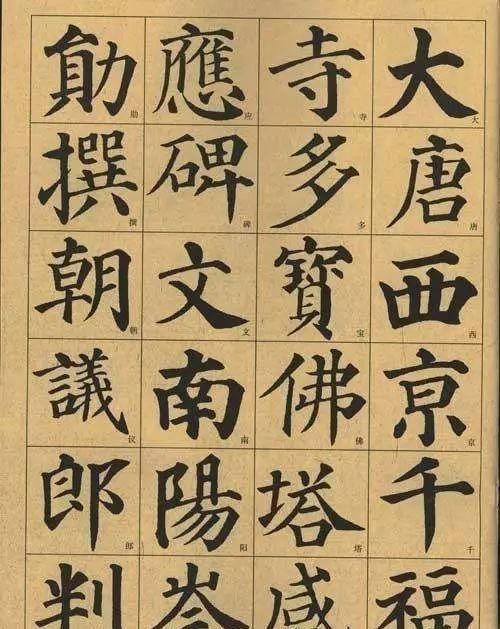 大唐西京千福
寺多寶佛塔感
應碑文南陽岑
勛撰朝議郎判
大
唐
西
京
千
寺
多
宝
佛
塔
应
碑
文
南
阳
勋
撰
朝
议
郎